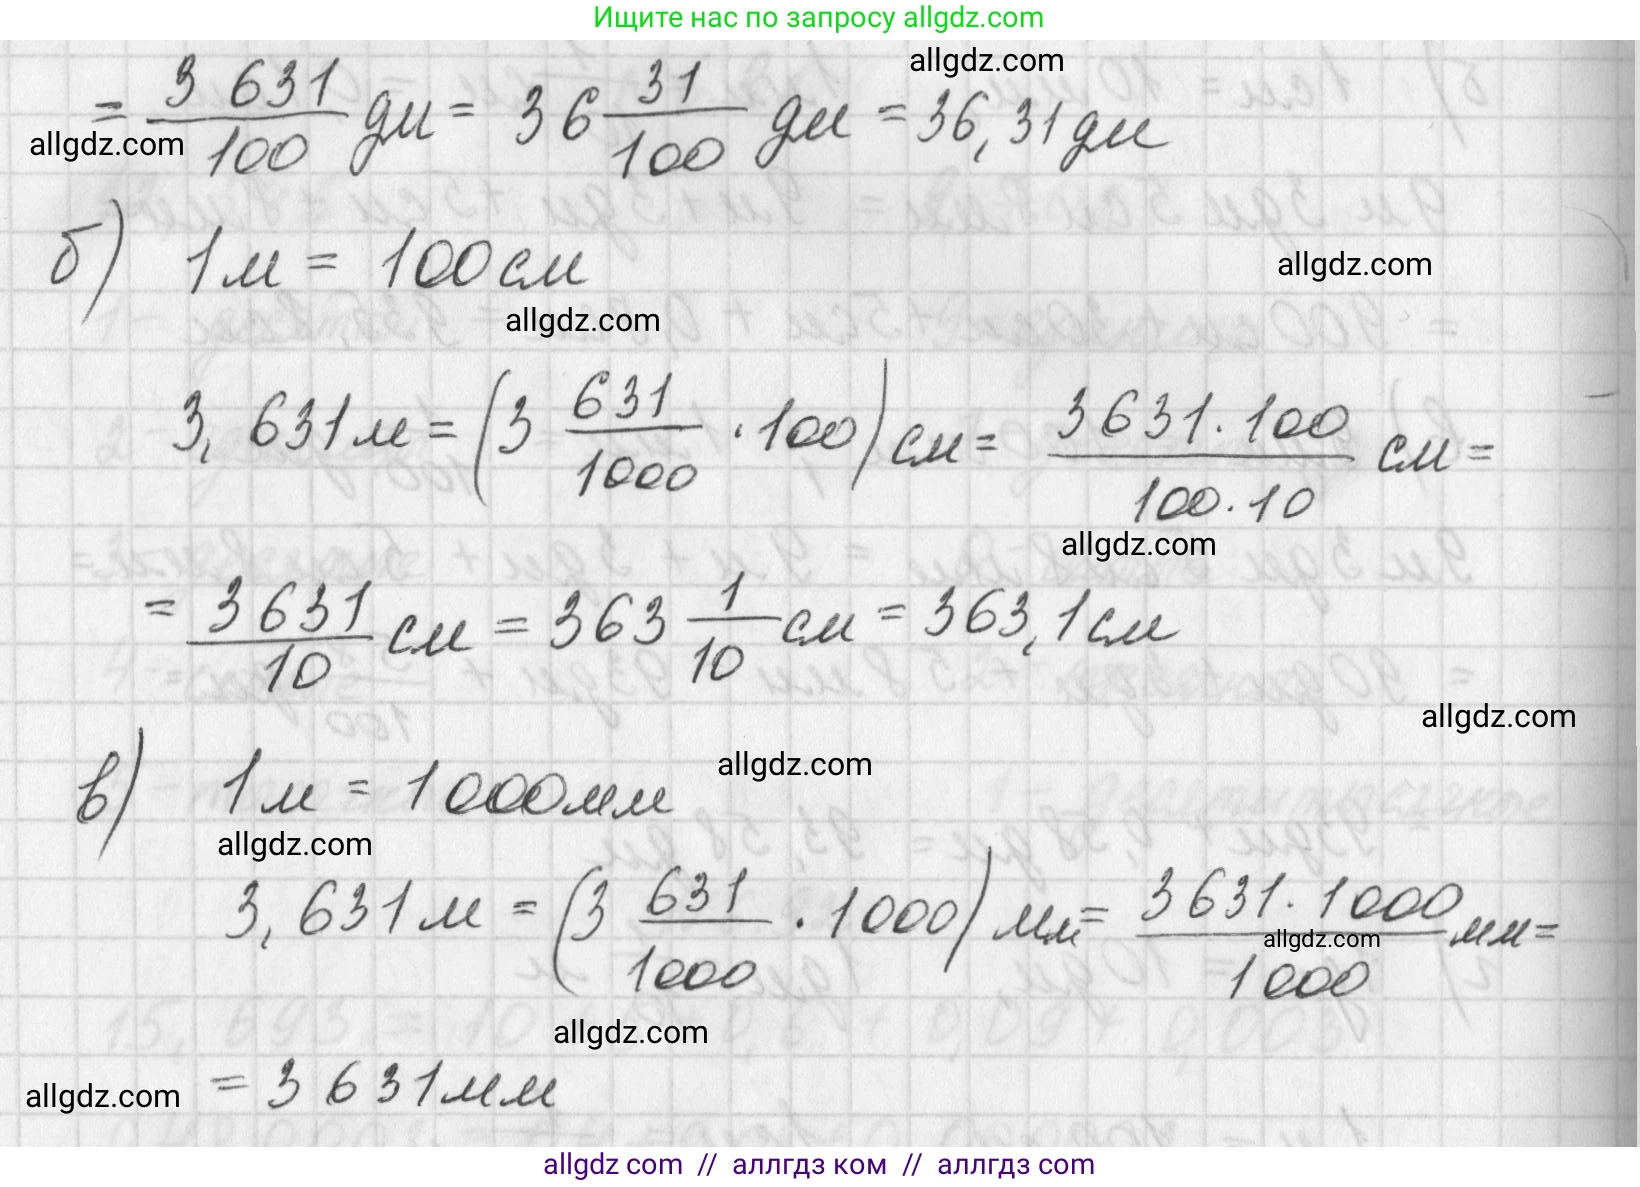 Ищите нас по запросу allgdz.com
allgdz.com
= 3 631/100 дм = 36 31/100 дм = 36,31 дм
allgdz.com
б) 1 м = 100 см
allgdz.com
allgdz.com
3,631 м = (3 631/1000 · 100) см = 3631·100/100·10 см =
allgdz.com
= 3631/10 см = 363 1/10 см = 363,1 см
allgdz.com
в) 1 м = 1000 мм
allgdz.com
allgdz.com
3,631 м = (3 631/1000 · 1000) мм = 3631·1000/1000 мм =
allgdz.com
allgdz.com
= 3 631 мм
allgdz.com
allgdz com // аллгдз ком // аллгdз com